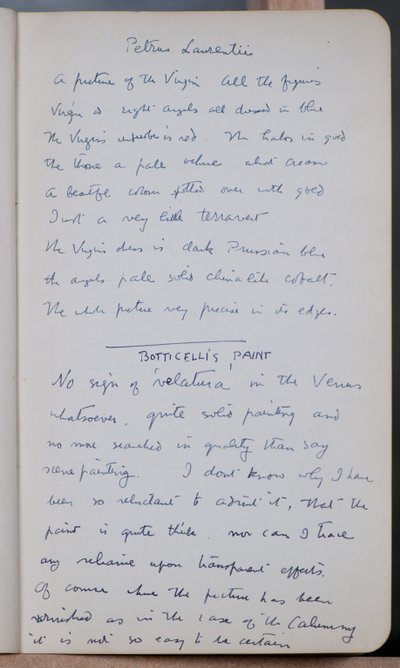 Petrus Laurentii
A picture of the Virgin All the figures
Virgin & eight angels all dressed in blue
The Virgin's is red. The halos in gold
the throne a pale ochre
A colour over with gold
Just a very little terravert
The Virgins dress is dark Prussian blue
the angels pale solid chinalike cobalt.
The whole picture very precise in its edges.
BOTTICELLI'S PAINT
No sign of 'velatura' in the Venus
whatsoever, quite solid painting and
no more searched in quality than say
scene painting. I dont know why I have
been so reluctant to admit it, that the
paint is quite thick. nor can I trace
any reliance upon transparent effects.
Of course where the picture has been
varnished as in the case of the Calumny
it is not so easy to be certain